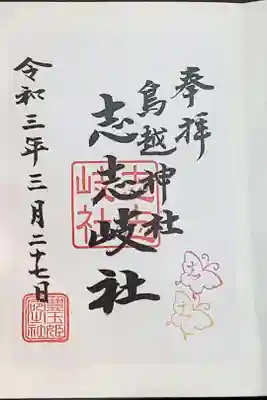 奉拝
鳥越神社
志志岐社
令和三年三月二十七日